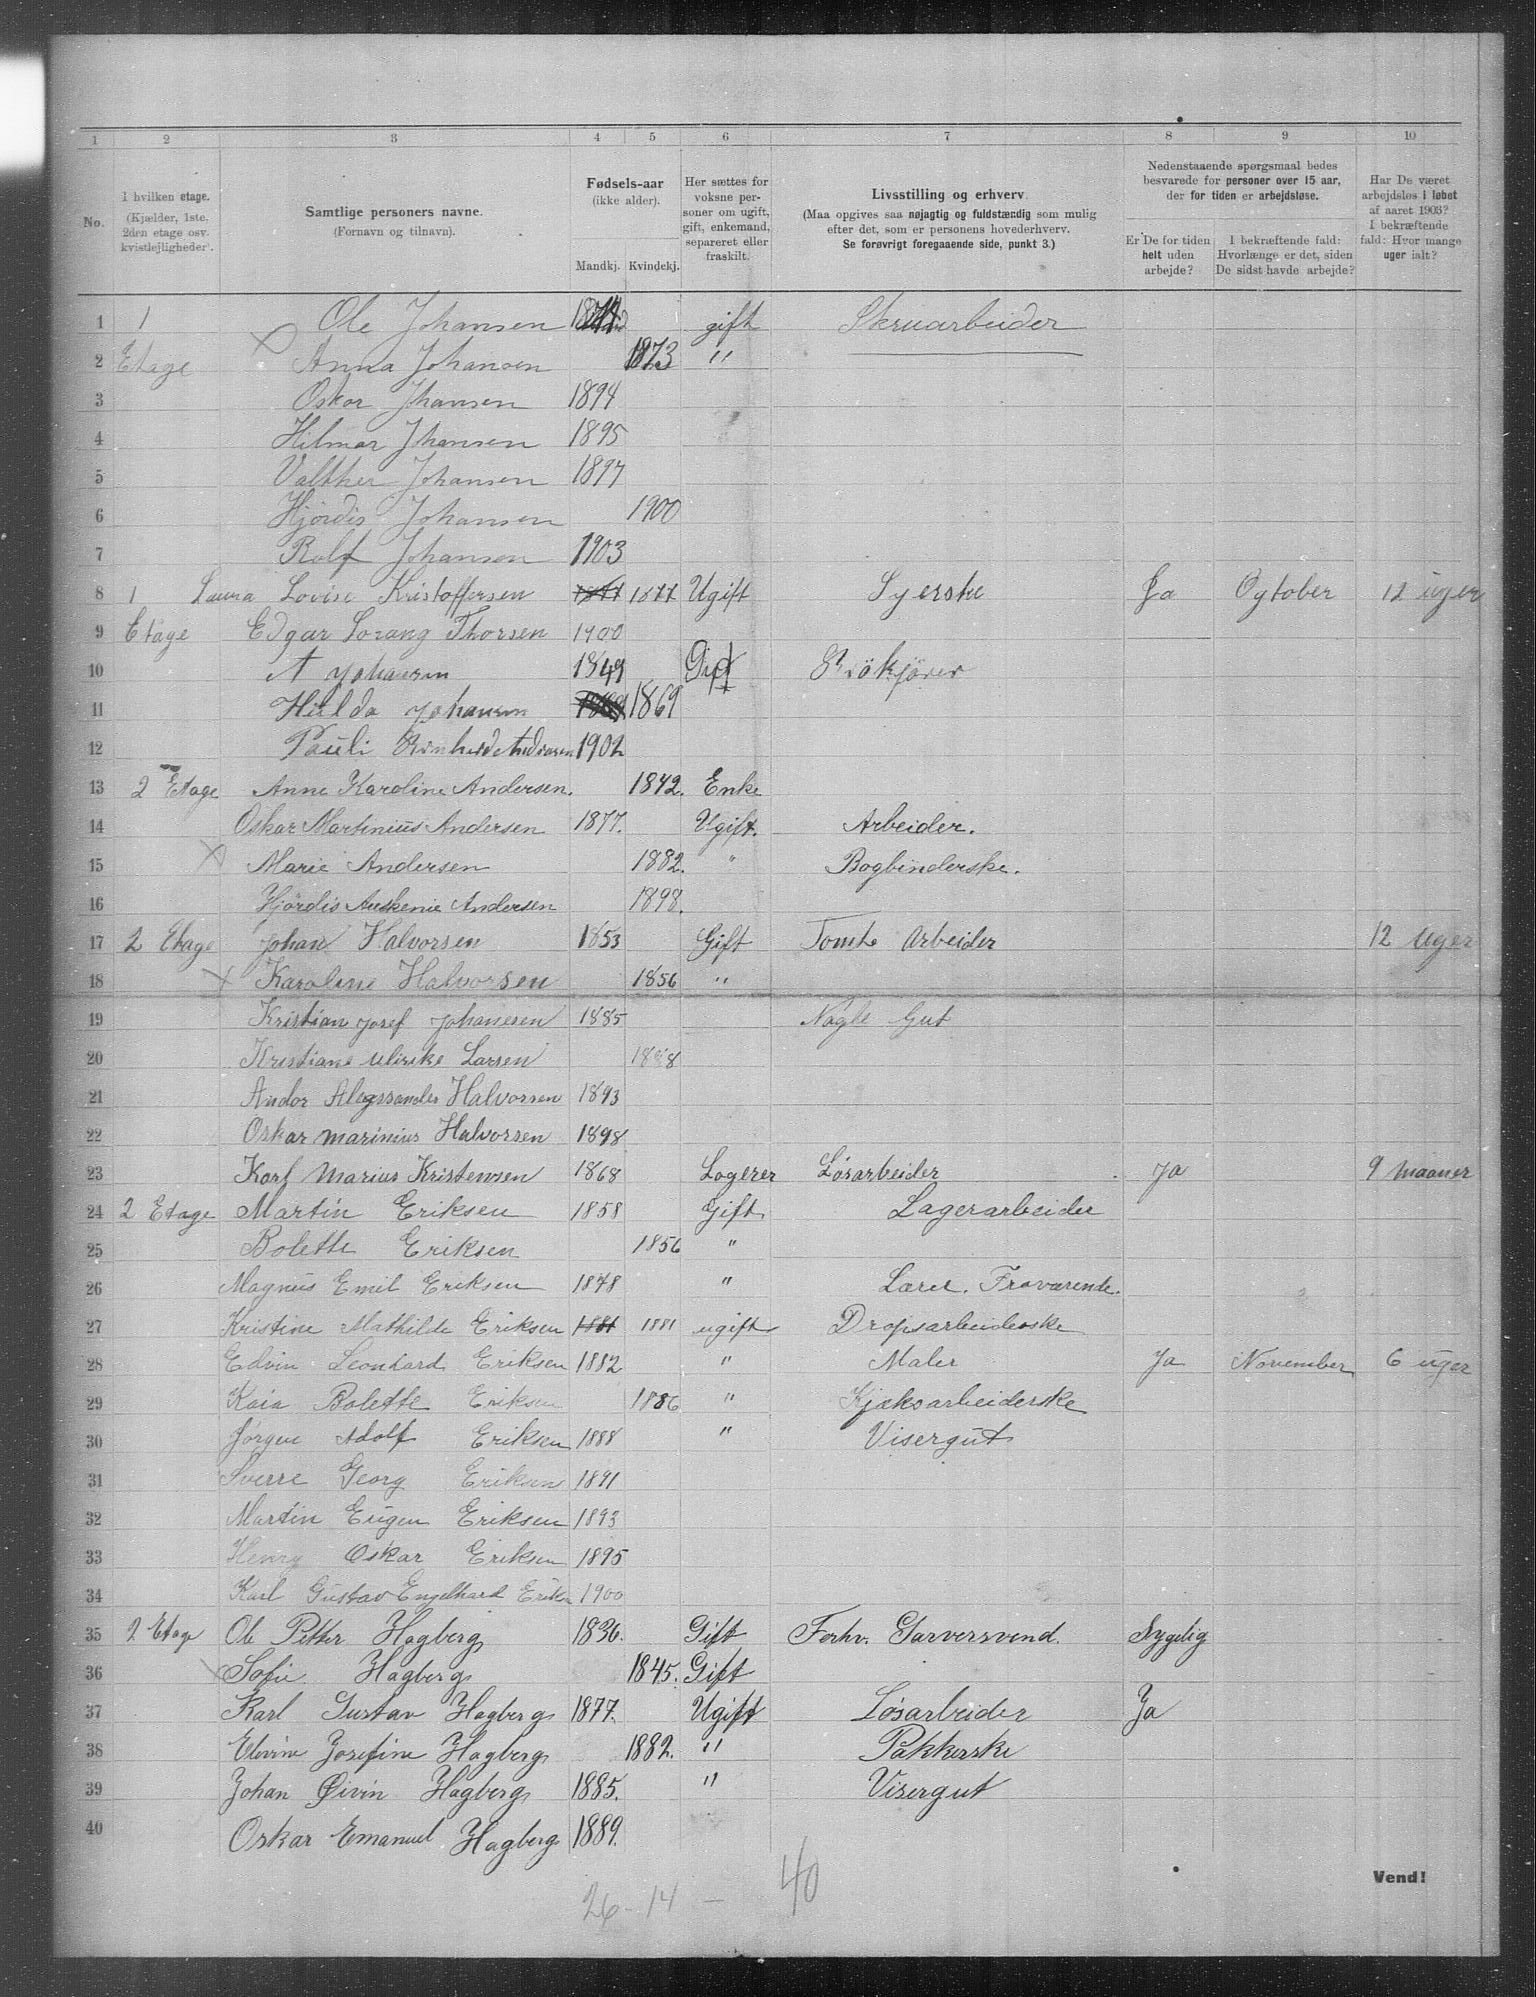 1 2 3 4 5 6 7 8 9 10
No.
I hvilken etage.
(Kjælder, 1ste,
2den etage osv.
kvistlejligheder.
Samtlige personers navne.
(Fornavn og tilnavn).
Fødsels-aar
(ikke alder).
Mandkj. Kvindekj.
Her sættes for
voksne per-
soner om ugift,
gift, enkemand,
separeret eller
fraskilt.
Livsstilling og erhverv.
(Maa opgives saa nøjagtig og fuldstændig som mulig
efter det, som er personens hovederhverv.
Se forøvrigt foregaaende side, punkt 3.)
Nedenstaaende spørgsmaal bedes
besvarede for personer over 15 aar,
der for tiden er arbejdsløse.
Er De for tiden
helt uden
arbejde?
I bekræftende fald:
Hvorlænge er det, siden
De sidst havde arbejde?
Har De været
arbejdsløs i løbet
af aaret 1903?
I bekræftende
fald: Hvor mange
uger ialt?
1 1 Ole Johansen gift Skruarbeider
2 Etage Anna Johansen 1873 "
3 Oskar Jhansen 1894
4 Hilmar Jhansen 1895
5 Valther Johansen 1897
6 Hjørdis Johansen 1900
7 Rolf Johansen 1903
8 1 Laura Lovise Kristoffersen 1877 Ugift Syerske Ja Oytober 12 uger
9 Etage Edgar Sorang Thorsen 1900
10 A Johansen 1849 Gift
11 Hulda Johansen 1869
12 Pauli 1902
13 2 Etage Anne Karoline Andersen. 1842. Enke
14 Oskar Martinius Andersen 1877. Ugift. Arbeider.
15 Marie Andersen 1882. " Bogbinderske.
16 Hjördis Auskenie Andersen 1898.
17 2 Etage Johan Halvorsen 1853 Gift Tomte Arbeider 12 uger
18 Karoline Halvorsen 1856 "
19 Kristian Josef Johanesen 1885 Nagle Gut
20 Kristiane Ulrikke Larsen
21 Andor Alegssander Halvorsen 1893
22 Oskar Marinius Halvorsen 1898
23 Karl Marius Kristensen 1868 Logerer Løsarbeider Ja 9 maaner
24 2 Etage Martin Eriksen 1858 Gift Lagerarbeider
25 Bolette Eriksen 1856 "
26 Magnus Emil Eriksen 1878 " Lærer. Fraværende.
27 Kristine Mathilde Eriksen 1881 1881 ugift Dropsarbeiderske
28 Edvin Leonhard Eriksen 1882 " Maler Ja November 6 uger
29 Kaia Bolette Eriksen 1886 " Kjæksarbeiderske
30 Jörgen Adolf Eriksen 1888 " Visergut
31 Sverre Georg Eriksen 1891
32 Martin Eugen Eriksen 1893
33 Henry Oskar Eriksen 1895
34 Karl Gustav Engelhard Eriksen 1900
35 2 Etage Ole Petter Hagberg 1836. Gift Forhv. Garversvend. Sygelig
36 Sofie Hagberg 1845. Gift
37 Karl Gustav Hagberg 1877. Ugift Løsarbeider Ja
38 Elevine Josefine Hagberg 1882. " Pakkerske
39 Johan Øivin Hagberg 1885. " Visergut
40 Oskar Emanuel Hagberg 1889.
26 - 14 - 40
Vend!